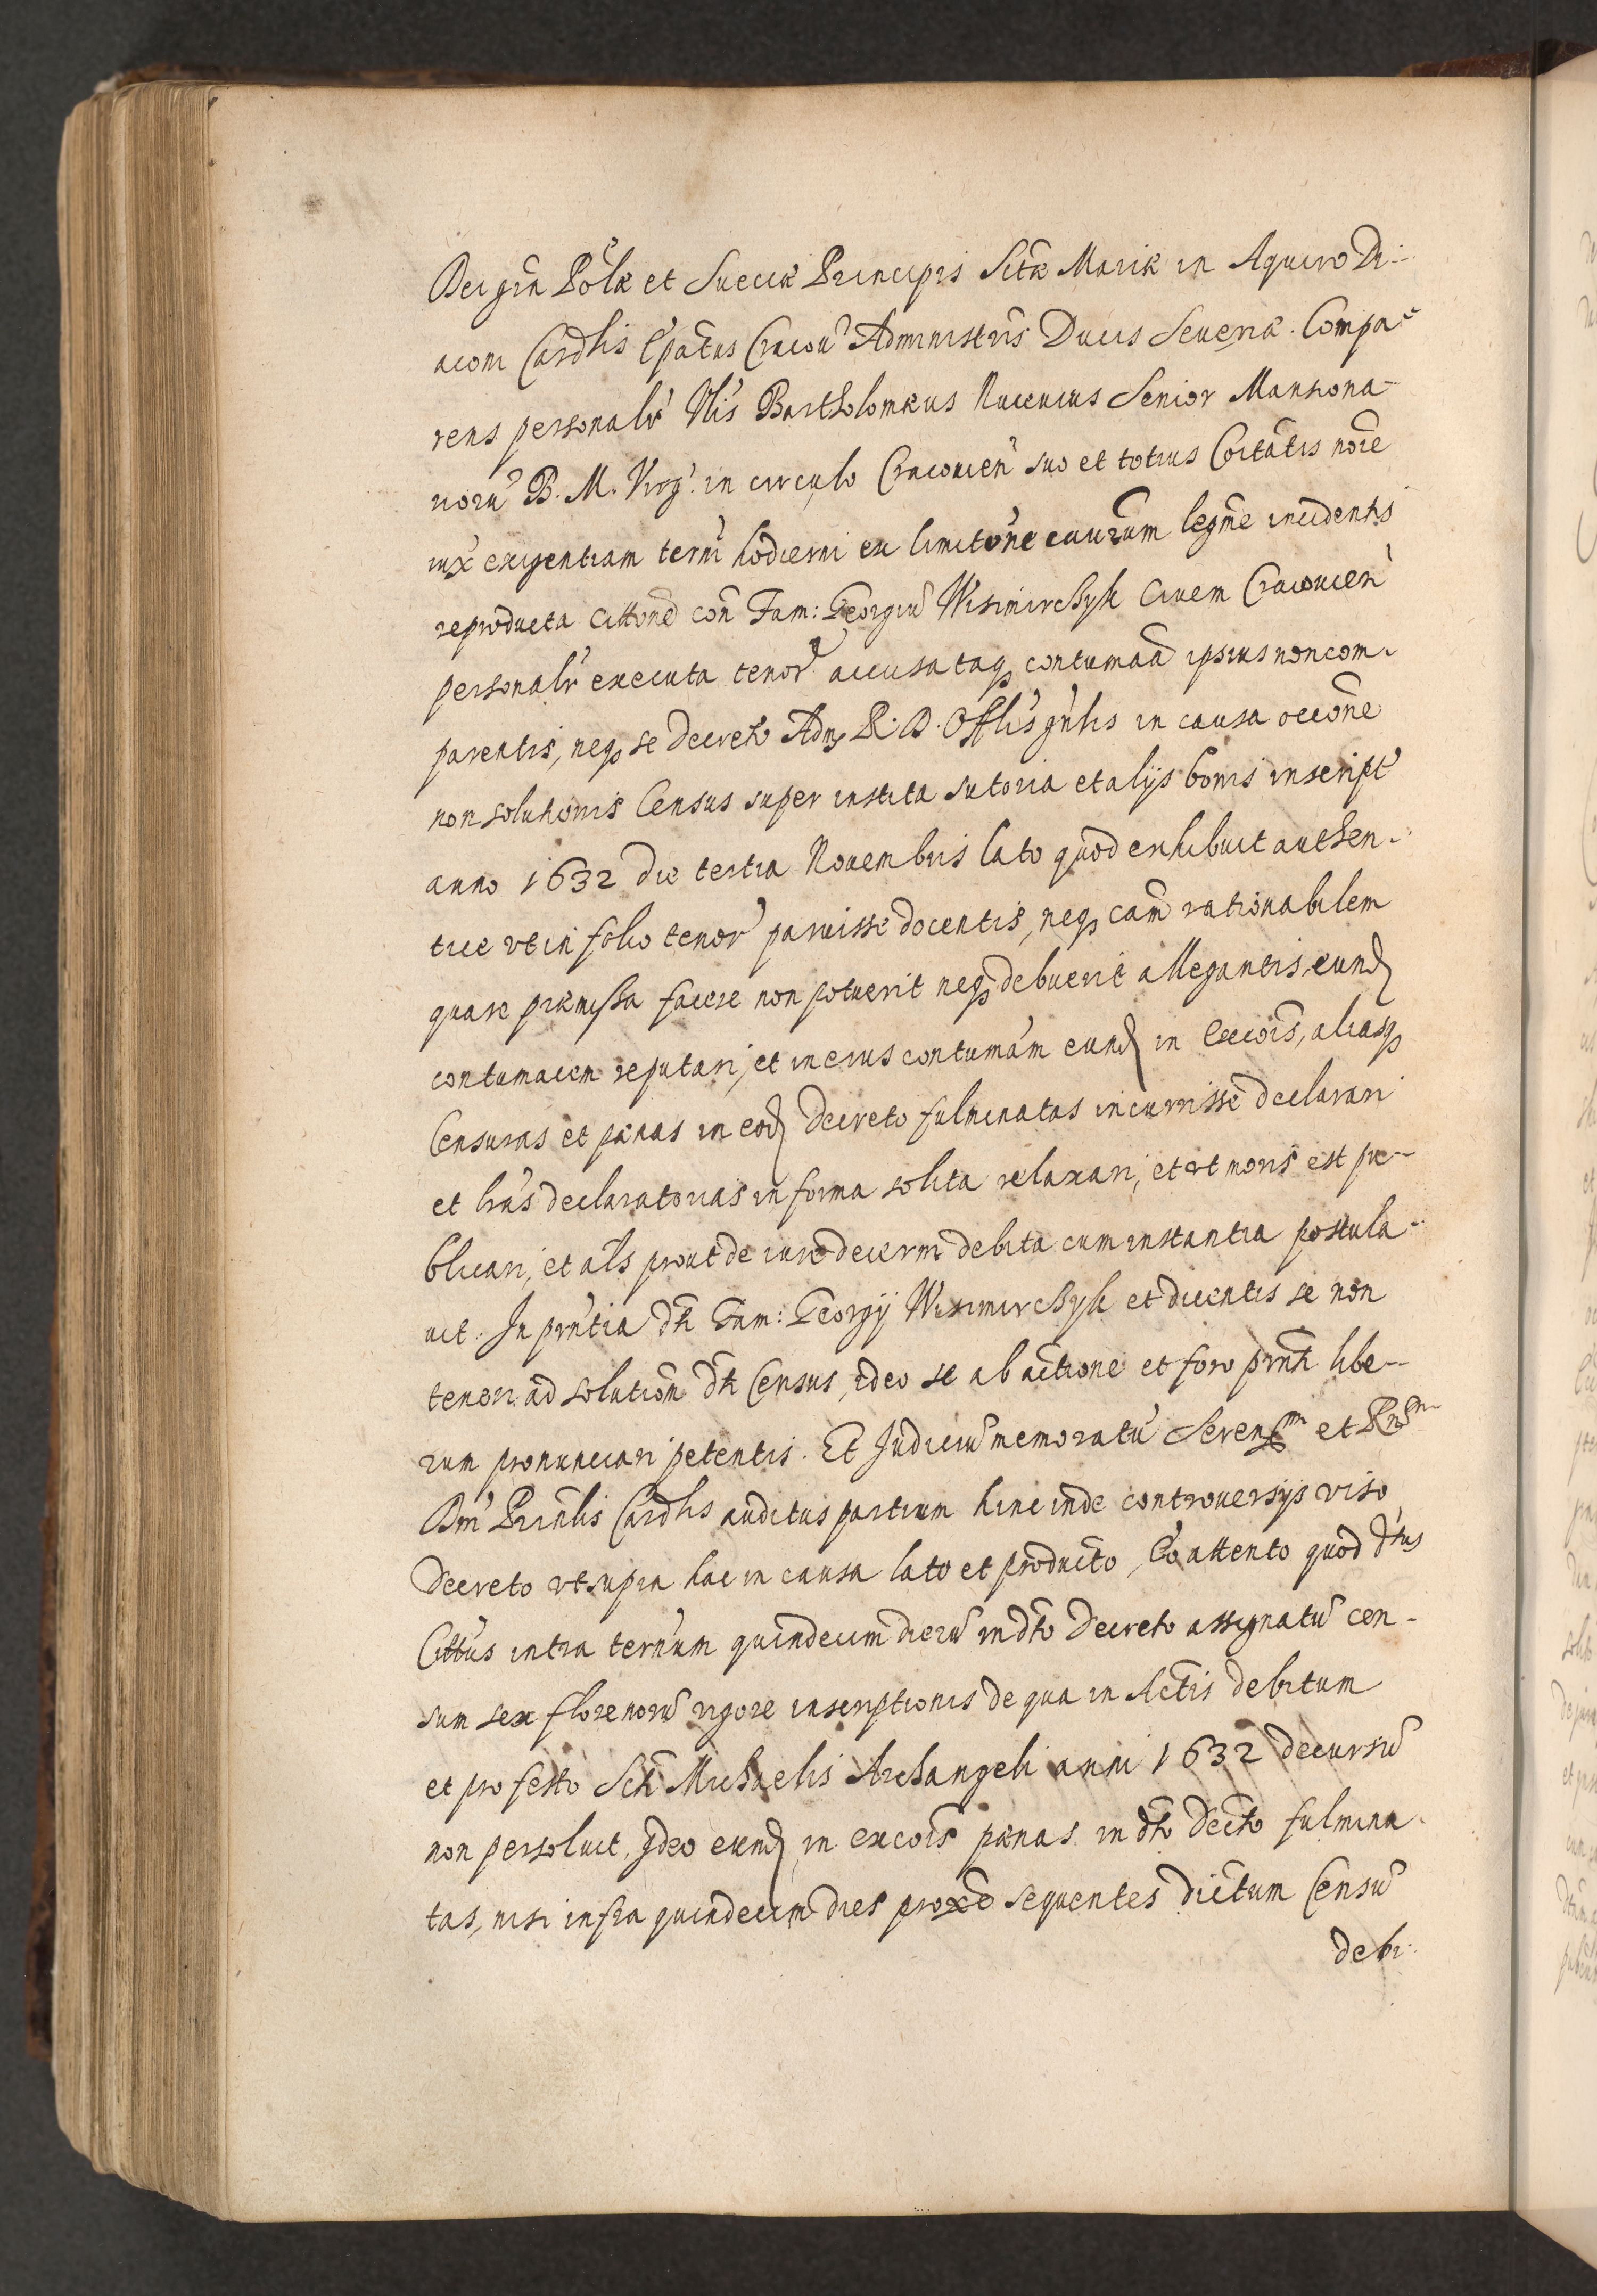 Dei grãn Polæ et Sueciæ Principis Sctæ Mariæ in Aquiro Di-
aconi Cardlis Epatus Cracou Administris Ducis Seueriæ. Compa-
rens personalr Vlis Bartholomæus Rucevius Senior Mansiona-
rioru B. M. Virg. in circulo Cracouien suo et totius Coitatis noie
iux exigentiam termi hodierni ex limitone causarum legme incidentis
reproducta Cittone con Fam: Georgiu Wisimirchyk Ciuem Cracouien
personalr executa tenor accusataq contumaa ipsius noncom-
parentis, neq se decreto Adm R. D. Offlis gnlis in causa occone
non solutionis Census super instita sutoria et alijs bonis inscript
anno 1632 die tertia Nouembris lato quod exhibuit authen-
tice vt in folio tenor paruisse docentis, neq cam rationabilem
quare præmissa facere non potuerit neq debuerit allegantis, eund
contumacem reputari, et in eius contumam eund in excois, aliasq
Censuras et pænas in eod decreto fulminatas incurrisse declarari
et lras declaratorias in forma solita relaxari, et vt moris est pu-
blicari, et als prout de iure decerni debita cum instantia postula-
uit. In prntia dti Fam: Georgij Wisimirchyk et dicentis se non
teneri ad solution dti Census, ideo se ab actione et foro prnti libe-
rum pronunciari petentis. Et Judiciu memoratu Serenssmi et Rndmi
Dni Prinlis Cardlis auditus partium hinc inde controuersijs viso
Decreto vt supra hac in causa lato et producto, Eo attento quod dtus
Cittus intra ternum quindecim dieru in dto Decreto assignatu cen-
sum sex florenoru vigore inscriptionis de qua in Actis debitum
et pro festo Scti Michaelis Archangeli anni 1632 decursu
non persoluit, Ideo eund in excois pænas in dto decto fulmina-
tas, nisi infra quindecim dies proxe sequentes dictum Censu
debi-